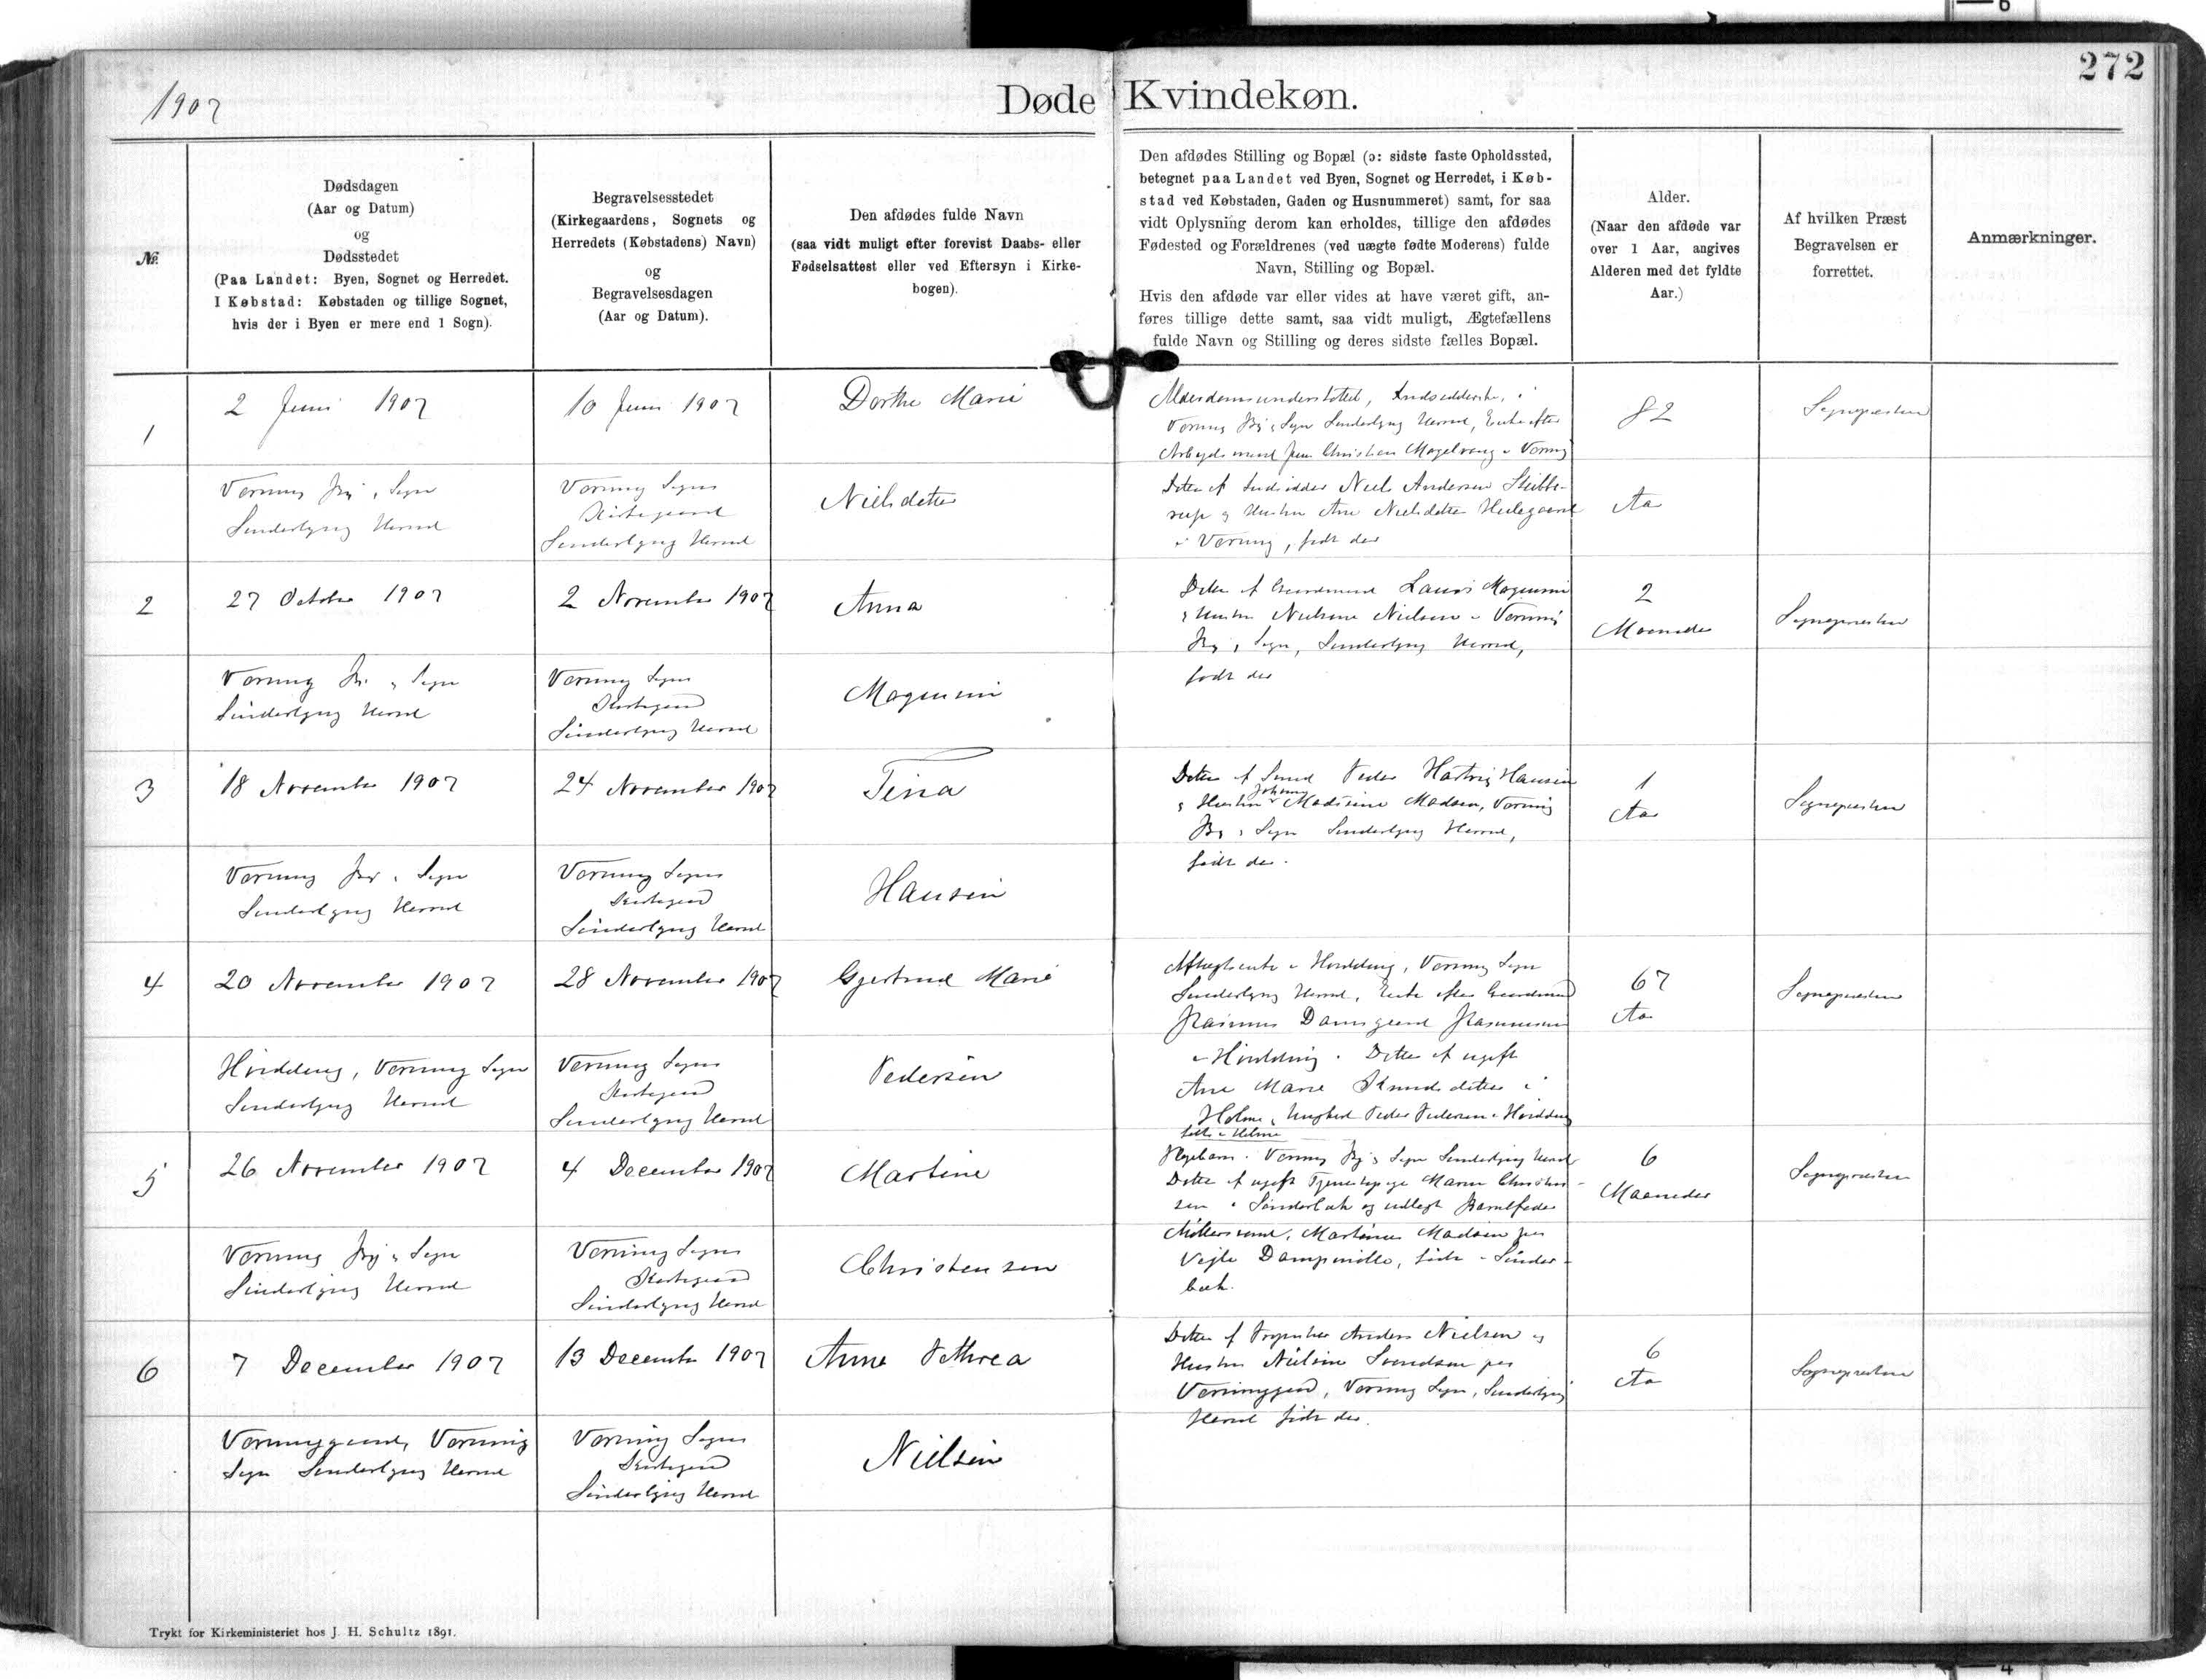 272
1907
Døde Kvindekøn.
№.
Dødsdagen
(Aar og Datum)
og
Dødsstedet
(Paa Landet: Byen, Sognet og Herredet.
I Købstad: Købstaden og tillige Sognet,
hvis der i Byen er mere end 1 Sogn).
Begravelsesstedet
(Kirkegaardens, Sognets og
Herredets (Købstadens) Navn)
og
Begravelsesdagen
(Aar og Datum).
Den afdødes fulde Navn
(saa vidt muligt efter forevist Daabs- eller
Fødselsattest eller ved Eftersyn i Kirke-
bogen).
Den afdødes Stilling og Bopæl (ɔ: sidste faste Opholdssted,
betegnet paa Landet ved Byen, Sognet og Herredet, i Køb-
stad ved Købstaden, Gaden og Husnummeret) samt, for saa
vidt Oplysning derom kan erholdes, tillige den afdødes
Fødested og Forældrenes (ved uægte fødte Moderens) fulde
Navn, Stilling og Bopæl.
Hvis den afdøde var eller vides at have været gift, an-
føres tillige dette samt, saa vidt muligt, Ægtefællens
fulde Navn og Stilling og deres sidste fælles Bopæl.
Alder.
(Naar den afdøde var
over 1 Aar, angives
Alderen med det fyldte
Aar.)
Af hvilken Præst
Begravelsen er
forrettet.
Anmærkninger.
1
2 Juni 1907
Vorning By og Sogn
Sønderlyng Herred
10 Juni 1907
Vorning Sogns
Kirkegaard
Sønderlyng Herred
Dorthe Marie
Nielsdatter
Alderdomsunderstøttet, Indsidderske, i
Vorning By og Sogn Sønderlyng Herred, Enke efter
Arbejdsmand Jens Christian Mogelvang i Vorning
Datter af Indsidder Niels Andersen
og Hustru Ane Nielsdatter
i Vorning, født der
82
Aar
Sognepræsten
2
27 October 1907
Vorning By og Sogn
Sønderlyng Herred
2 November 1907
Vorning Sogns
Kirkegaard
Sønderlyng Herred
Anna
Mogensen
Datter af Gaardmand Laurs Mogensen
og Hustru Nielsine Nielsen i Vorning
By og Sogn, Sønderlyng Herred,
født der
2
Maaneder
Sognepræsten
3
18 November 1907
Vorning By og Sogn
Sønderlyng Herred
24 November 1907
Vorning Sogns
Kirkegaard
Sønderlyng Herred
Tina
Hansen
Datter af Smed Peder Hartvig Hansen
og Hustru Johanne Madsine Madsen, Vorning
By og Sogn Sønderlyng Herred,
født der.
1
Aar
Sognepræsten
4
20 November 1907
Hvidding, Vorning Sogn
Sønderlyng Herred
28 November 1907
Vorning Sogns
Kirkegaard
Sønderlyng Herred
Gjertrud Marie
Pedersen
Aftægtsenke i Hvidding, Vorning Sogn
Sønderlyng Herred, Enke efter Gaardmand
Rasmus Damgaard Rasmussen
i Hvidding. Datter af ugift
Ane Marie Knudsdatter i
Holme, Ungkarl Peder Pedersen i Hvidding
født i Holme
67
Aar
Sognepræsten
5
26 November 1907
Vorning By og Sogn
Sønderlyng Herred
4 December 1907
Vorning Sogns
Kirkegaard
Sønderlyng Herred
Martine
Christensen
Plejebarn i Vorning By og Sogn Sønderlyng Herred
Datter af ugift Tjenestepige Maren Christen-
sen i Sønderbæk og udlagt Barnefader
Møllersvend, Martinus Madsen paa
Vejle Dampmølle, født i Sønder-
bæk.
6
Maaneder
Sognepræsten
6
7 December 1907
Vorninggaard, Vorning
Sogn Sønderlyng Herred
13 December 1907
Vorning Sogns
Kirkegaard
Sønderlyng Herred
Anne Pethrea
Nielsen
Datter af Forpagter Anders Nielsen og
Hustru Nielsine Svendsen paa
Vorninggaard, Vorning Sogn, Sønderlyng
Herred født der.
6
Aar
Sognepræsten
Trykt for Kirkeministeriet hos J. H. Schultz 1891.